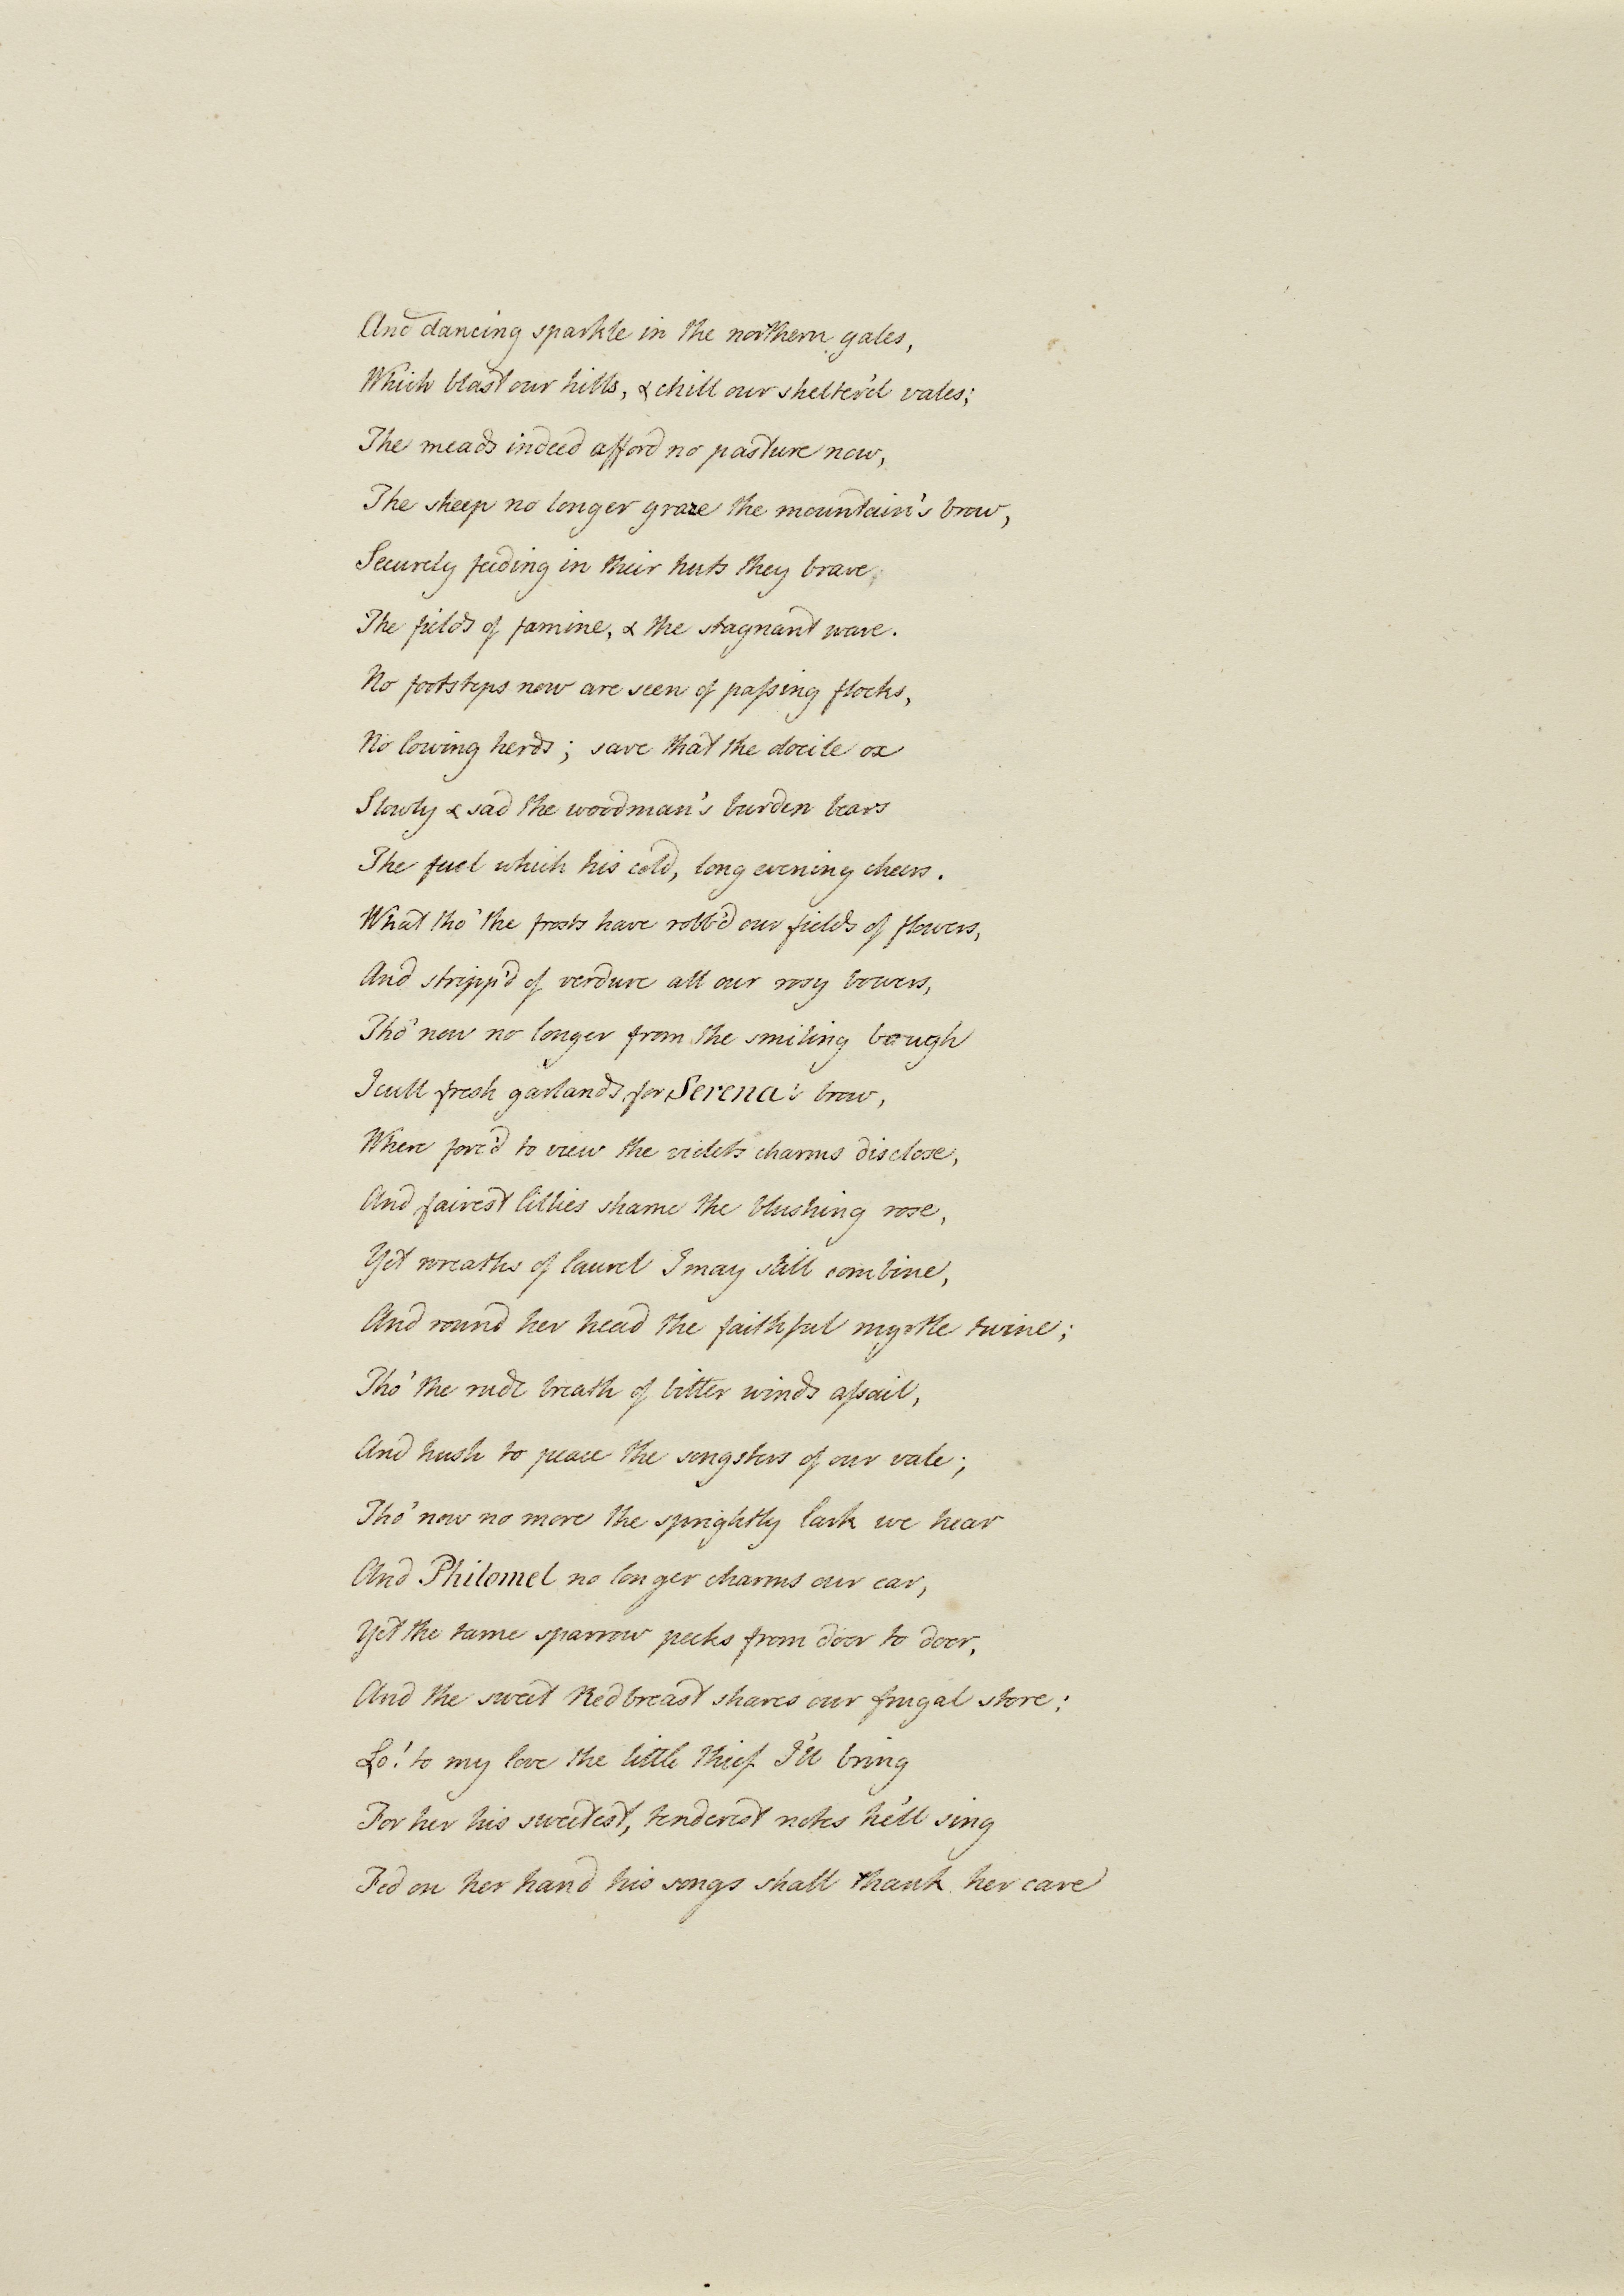 And dancing sparkle in the northern gales,
Which blast our hills, & chill our shelter'd vales;
The meads indeed afford no pasture now,
The sheep no longer graze the mountain's brow,
Securely feeding in their huts they brave,
The fields of famine, & the stagnant wave.
No footsteps now are seen of paſsing flocks,
No lowing herds; save that the docile ox
Slowly & sad the woodman's burden bears
The fuel which his cold, long evening cheers.
What tho' the frosts have robb'd our fields of flowers,
And stripp'd of verdure all our rosy bowers,
Tho' now no longer from the smiling bough
I cull fresh garlands for Serena's brow,
Where forc'd to view the violets charms disclose,
And fairest lillies shame the blushing rose,
Yet wreaths of laurel I may still combine,
And round her head the faithful myrtle twine;
Tho' the rude breath of bitter winds aſsail,
And hush to peace the songsters of our vale;
Tho' now no more the sprightly lark we hear
And Philomel no longer charms our ear,
Yet the tame sparrow pecks from door to door,
And the sweet Redbreast shares our frugal store:
Lo! to my love the little thief I'll bring
For her his sweetest, tenderest notes he'll sing
Fed on her hand his songs shall thank her care